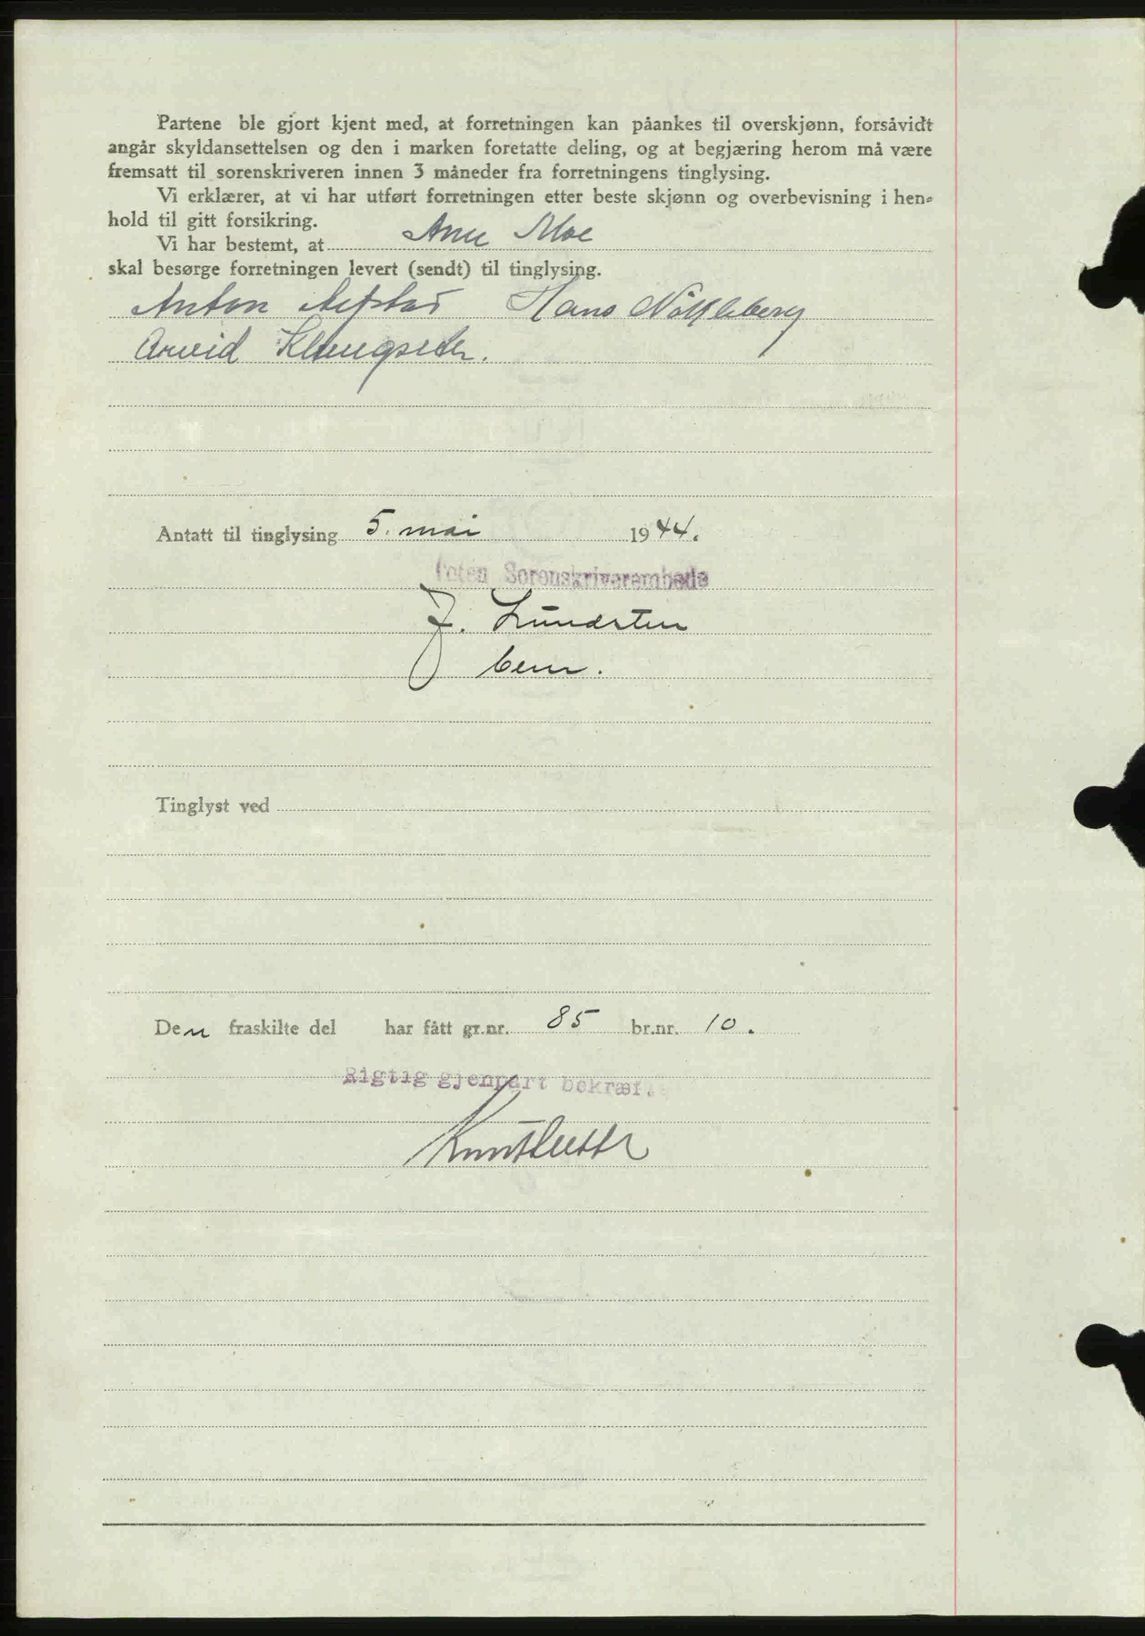 Partene ble gjort kjent med, at forretningen kan påankes til overskjønn, forsåvidt
angår skyldansettelsen og den i marken foretatte deling, og at begjæring herom må være
fremsatt til sorenskriveren innen 3 måneder fra forretningens tinglysing.
Vi erklærer, at vi har utført forretningen etter beste skjønn og overbevisning i hen-
hold til gitt forsikring.
Vi har bestemt, at Anne Moe
skal besørge forretningen levert (sendt) til tinglysing.
Anton Hans
Arvid
Antatt til tinglysing 5. mai 1944.
Toten Sorenskriverembede
J. Lundsten
bem.
Tinglyst ved
Den fraskilte del har fått gr.nr. 85 br.nr. 10.
Rigtig gjenpart bekræf.